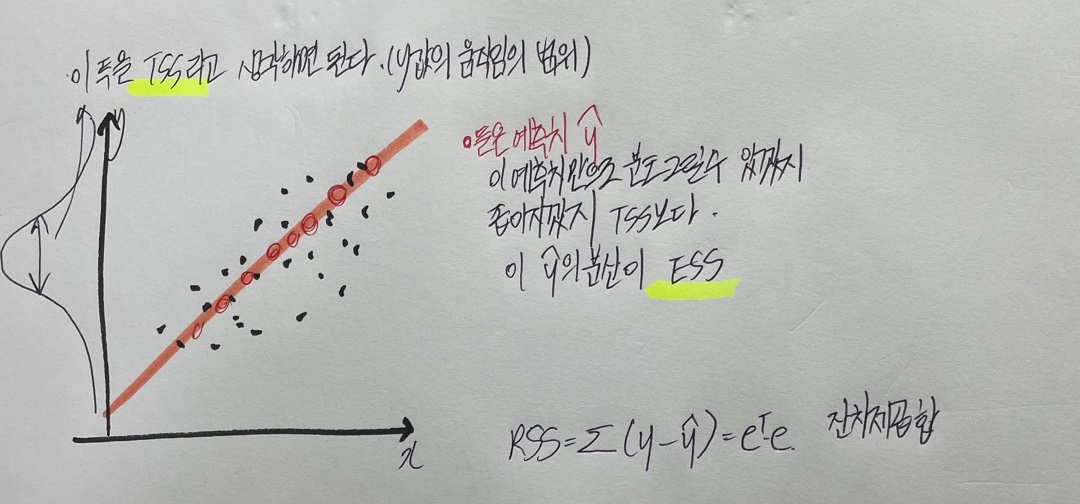 이 폭을 TSS라고 생각하면 된다. (y값의 움직임의 범위)
y
•들은 예측치 ŷ
이 예측치만으로 분포 그릴수 있겠지
좁아지겠지 TSS보다.
이 ŷ의 분산이 ESS
RSS=Σ(y-ŷ)=eᵀe. 잔차제곱합
x